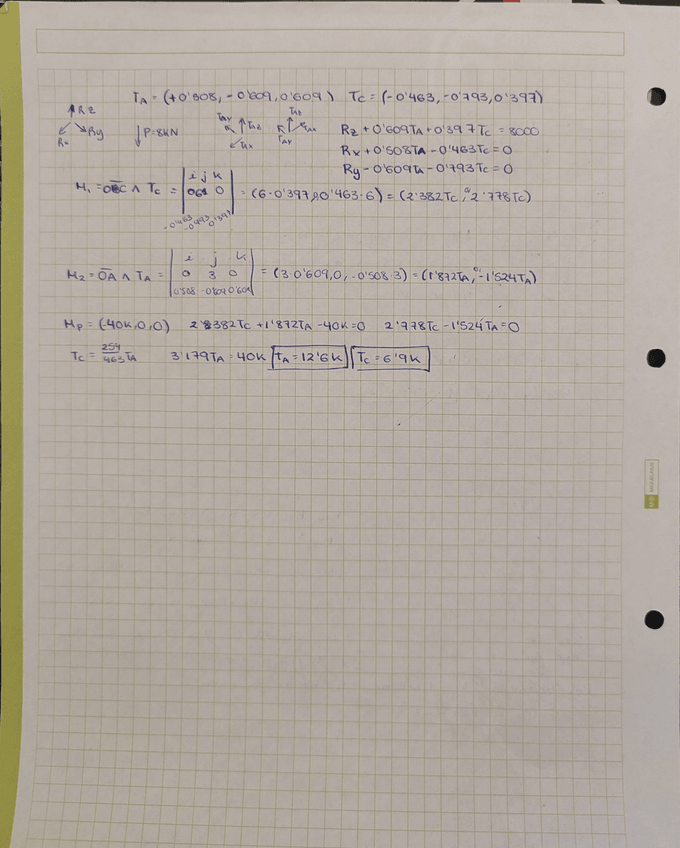 TA = (+0'508, -0'609, 0'609) TC = (-0'463, -0'793, 0'397)
Rz Ry Rx P=8KN TAY TAZ TAX TAZ TAX TAY
Rz + 0'609TA + 0'397TC = 8000
Rx + 0'508TA - 0'463TC = 0
Ry - 0'609TA - 0'793TC = 0
M1 = OC ∧ TC = | i j k | 0 6 0 | -0'463 -0'793 0'397 | = (6·0'397, 0, 0'463·6) = (2'382TC, 0, 2'778TC)
M2 = OA ∧ TA = | i j k | 0 3 0 | 0'508 -0'609 0'609 | = (3·0'609, 0, -0'508·3) = (1'872TA, 0, -1'524TA)
MP = (-40K, 0, 0) 2'382TC + 1'872TA - 40K = 0 2'778TC - 1'524TA = 0
TC = 254/463 TA 3'179TA = 40K TA = 12'6K TC = 6'9K